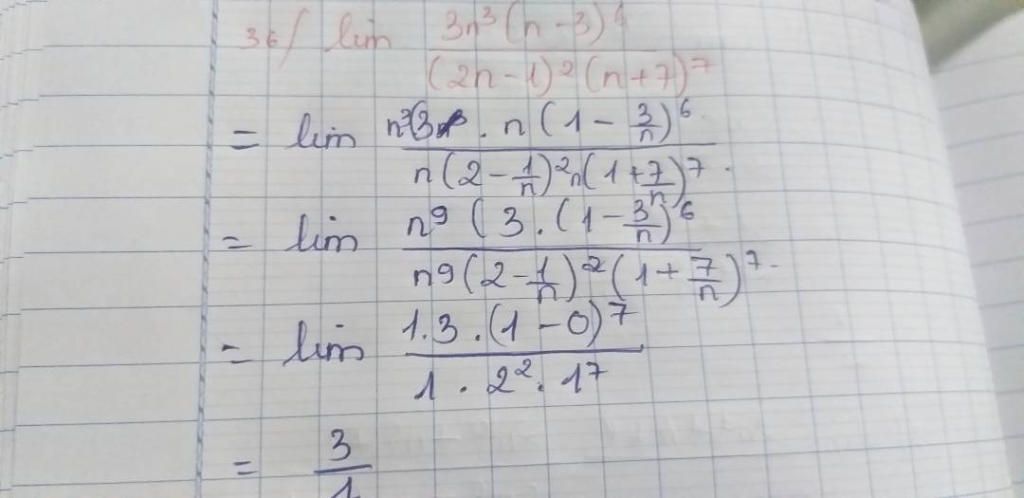 36/ lim 3n³(n-3)⁶ / (2n-1)²(n+7)⁷
= lim n³(3 . n(1 - 3/n)⁶ / n(2 - 1/n)² n(1 + 7/n)⁷
= lim n⁹ (3 . (1 - 3/n)⁶ / n⁹(2 - 1/n)² (1 + 7/n)⁷
= lim 1.3 . (1 - 0)⁷ / 1 . 2² . 1⁷
= 3 /